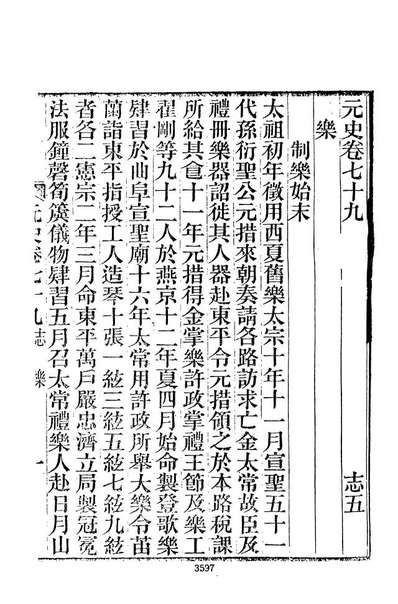 元史卷七十九　志五
樂
制樂始末
太祖初年徵用西夏舊樂太宗十年十一月宣聖五十一
代孫衍聖公元措來朝奏請各路訪求亡金太常故臣及
禮冊樂器詔徙其人器赴東平令元措領之於本路稅課
所給其食十一年元措得金掌樂許政掌禮王節及樂工
翟剛等九十二人於燕京十二年夏四月始命製登歌樂
肄習於曲阜宣聖廟十六年太常用許政所舉大樂令苗
蘭詣東平指授工人造琴十張一絃三絃五絃七絃九絃
者各二憲宗二年三月命東平萬戶嚴忠濟立局製冠冕
法服鐘磬筍簴儀物肄習五月召太常禮樂人赴日月山
元史卷七十九 志 樂 一
3597